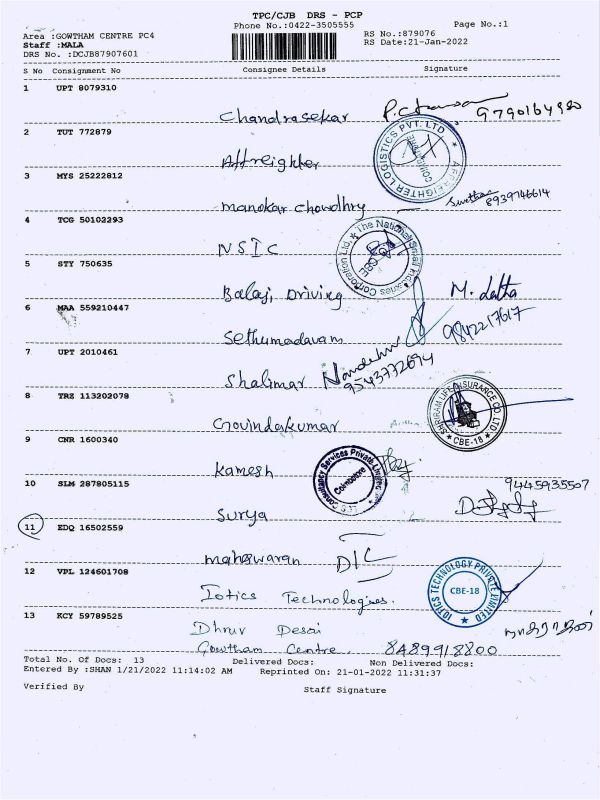 TPC/CJB DRS - PCP
Phone No.:0422-3505555
Page No.:1
Area :GOWTHAM CENTRE PC4
Staff :MALA
DRS No. :DCJB87907601
RS No.:879076
RS Date:21-Jan-2022
S No Consignment No Consignee Details Signature
1 UPT 8079310
Chandrasekar 9790164980
2 TUT 772879
Affreighter
AFFREIGHTER LOGISTICS PVT. LTD COIMBATORE
3 MYS 25222812
Manokar Chowdhry 8939746614
4 TCG 50102293
NSIC
The National Small Industries Corporation Ltd.
5 STY 750635
Balaji Driving M. Latha
6 MAA 559210447
Sethumadavam 9842217617
7 UPT 2010461
Shalimar 9543772694
8 TRZ 113202078
Govindakumar
SHRIRAM LIFE INSURANCE CO. LTD. CBE-18
9 CNR 1600340
Kamesh
Consultancy Services Private Limited Coimbatore
10 SLM 287805115
Surya 9445935507
11 EDQ 16502559
Maheswaran DIC
12 VPL 124601708
Iotics Technologies.
IOTICS TECHNOLOGY PRIVATE LIMITED CBE-18
13 KCY 59789525
Dhruv Desai
Gowtham Centre. 8489918800
Total No. Of Docs: 13 Delivered Docs: Non Delivered Docs:
Entered By :SHAN 1/21/2022 11:14:02 AM Reprinted On: 21-01-2022 11:31:37
Verified By Staff Signature